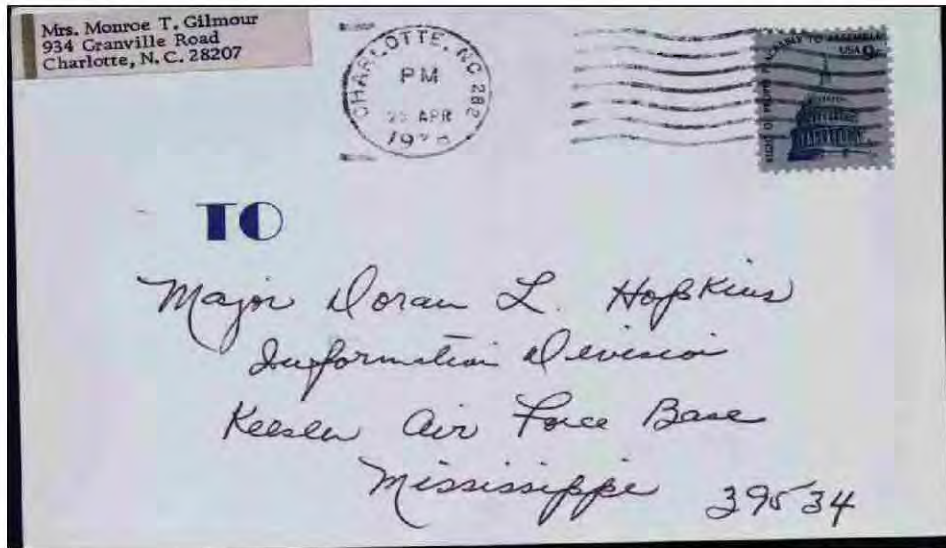 Mrs. Monroe T. Gilmour
934 Granville Road
Charlotte, N. C. 28207
CHARLOTTE, NC 282
PM
APR
RIGHT OF PEOPLE PEACEABLY TO ASSEMBLE
USA 9c
TO
Major Doran L. Hopkins
Information Division
Keesler Air Force Base
Mississippi 39534